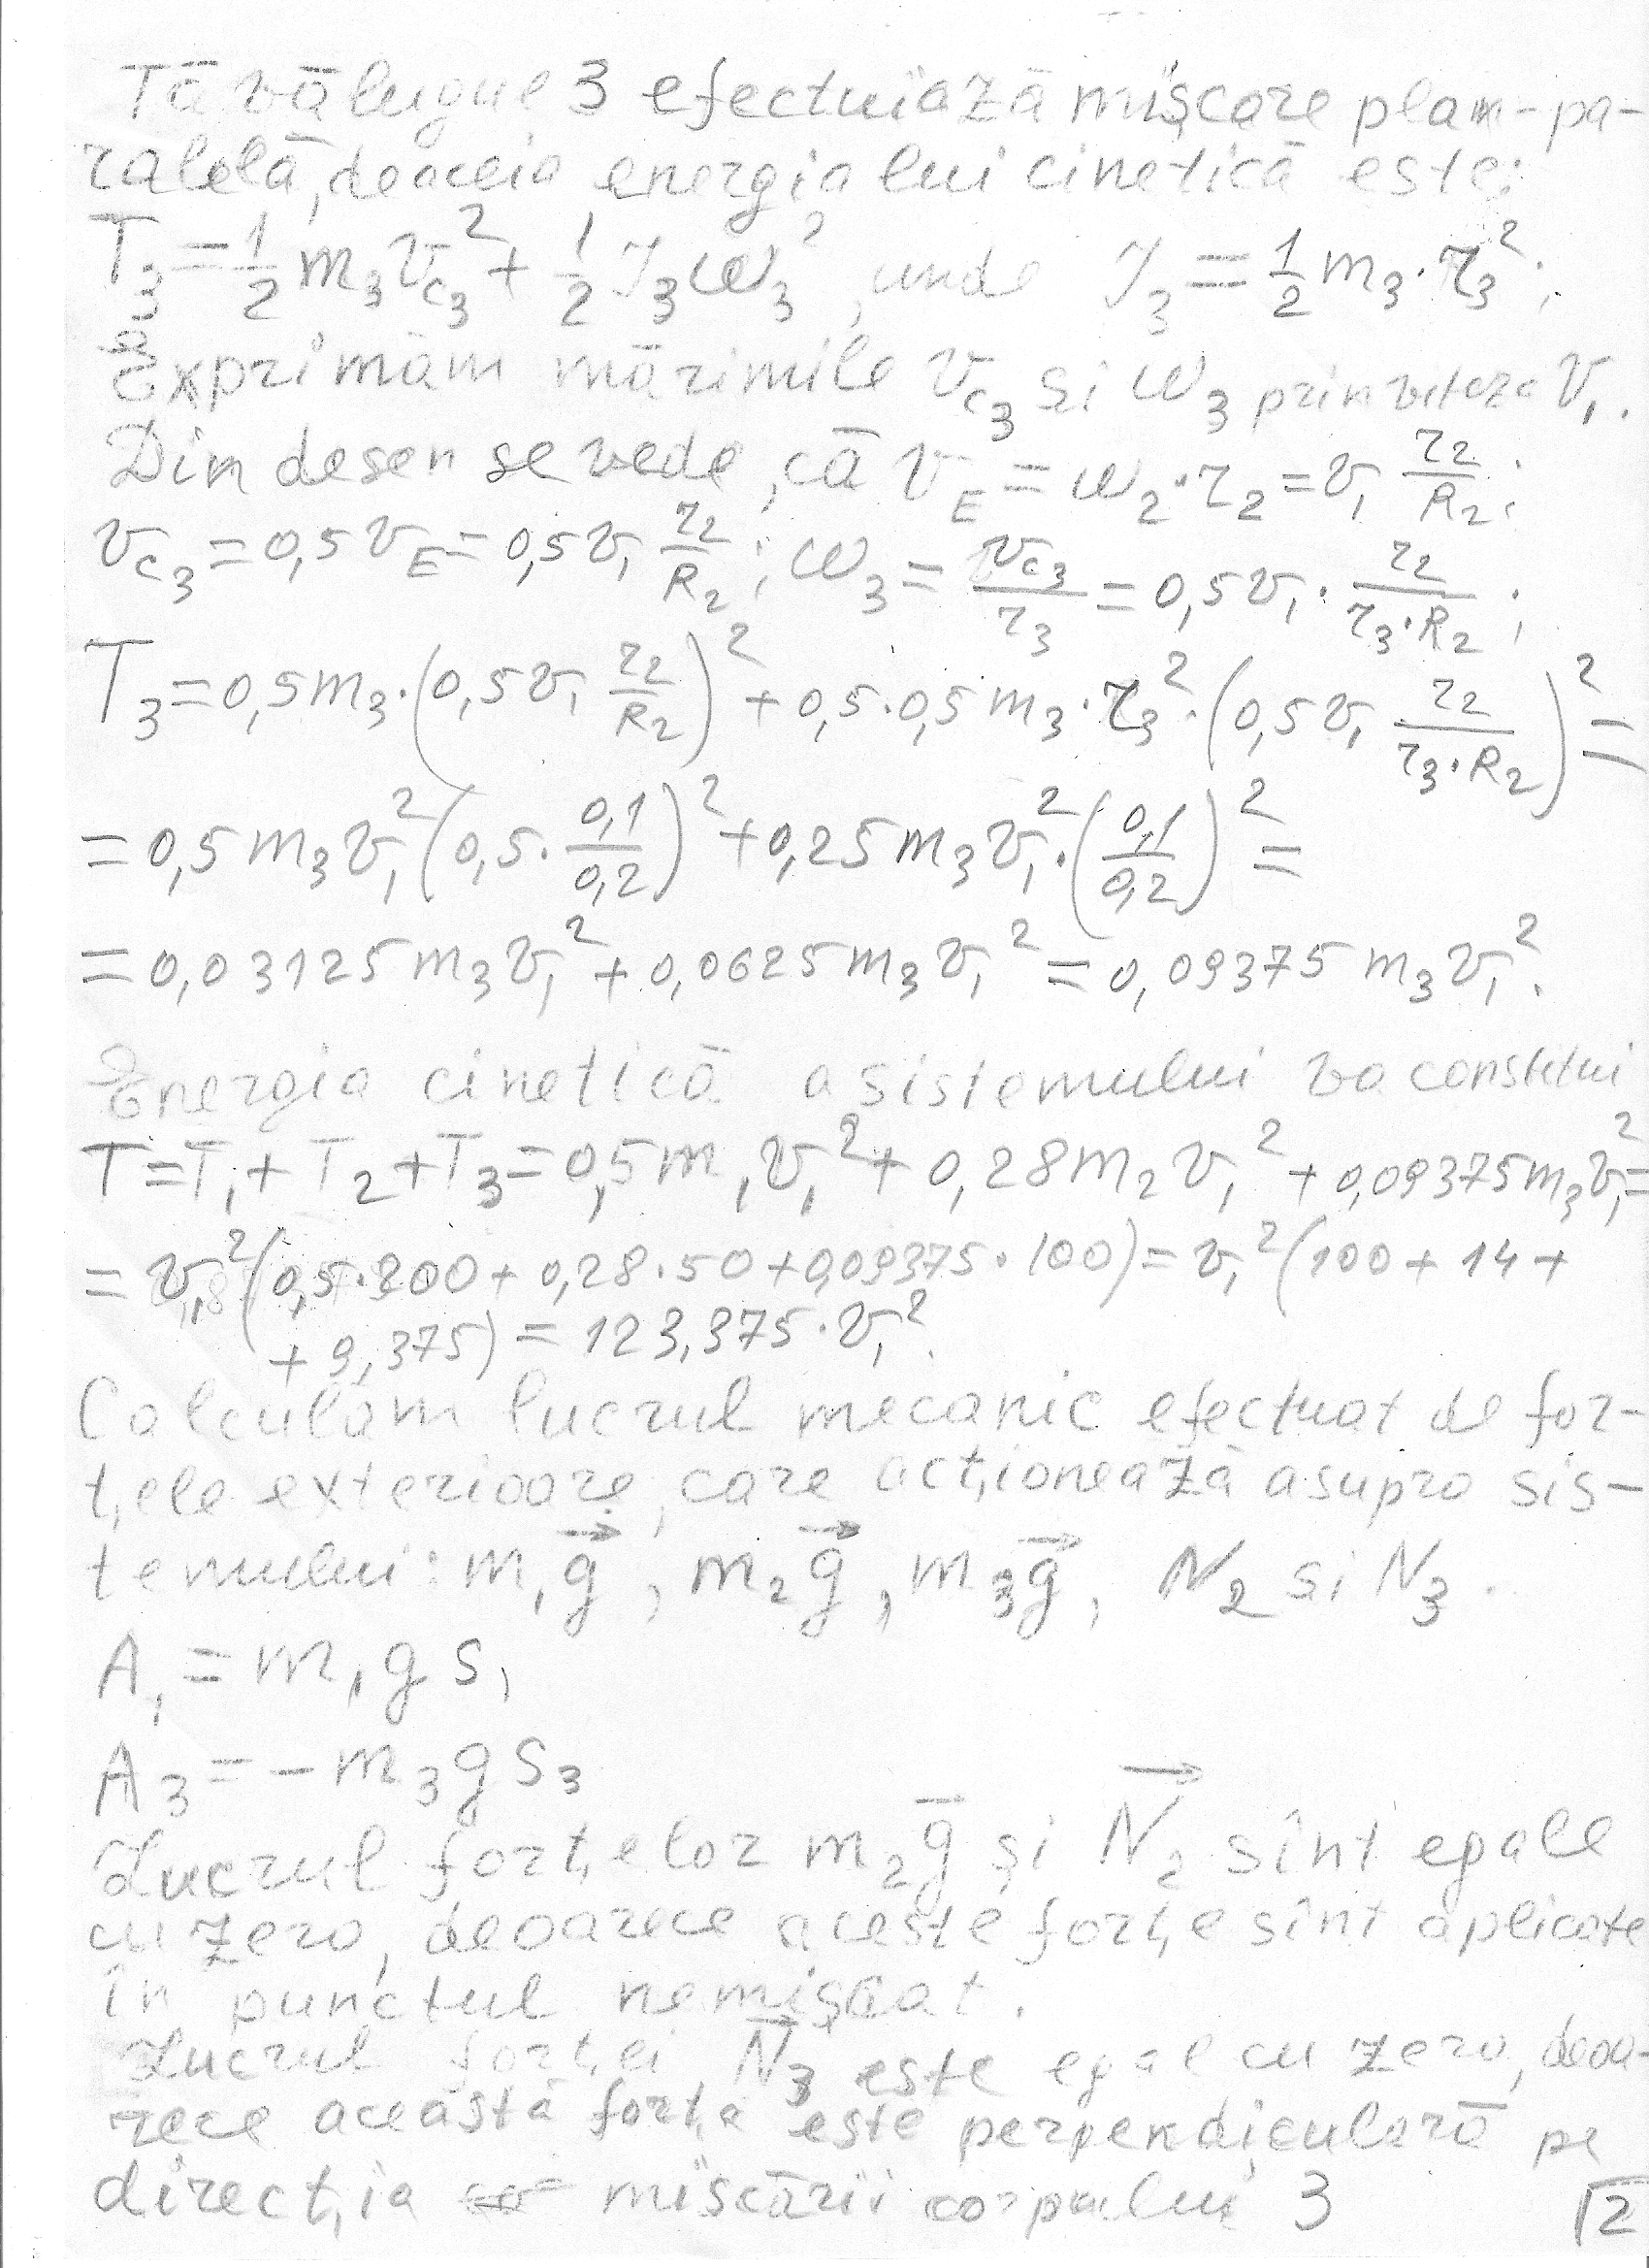 Tăvălugul 3 efectuiază mișcare plan-pa-
ralelă, deaceia energia lui cinetică este:
T₃ = 1/2 m₃ v_c₃² + 1/2 J₃ ω₃², unde J₃ = 1/2 m₃ · r₃²;
Exprimăm mărimile v_c₃ și ω₃ prin viteza v₁.
Din desen se vede, că v_E = ω₂ · r₂ = v₁ r₂/R₂;
v_c₃ = 0,5 v_E = 0,5 v₁ r₂/R₂; ω₃ = v_c₃/r₃ = 0,5 v₁ · r₂/(r₃·R₂);
T₃ = 0,5 m₃ · (0,5 v₁ r₂/R₂)² + 0,5 · 0,5 m₃ · r₃² · (0,5 v₁ r₂/(r₃·R₂))² =
= 0,5 m₃ v₁² (0,5 · 0,1/0,2)² + 0,25 m₃ v₁² · (0,1/0,2)² =
= 0,03125 m₃ v₁² + 0,0625 m₃ v₁² = 0,09375 m₃ v₁².
Energia cinetică a sistemului va constitui
T = T₁ + T₂ + T₃ = 0,5 m₁ v₁² + 0,28 m₂ v₁² + 0,09375 m₃ v₁² =
= v₁² (0,5 · 200 + 0,28 · 50 + 0,09375 · 100) = v₁² (100 + 14 +
+ 9,375) = 123,375 · v₁².
Calculăm lucrul mecanic efectuat de for-
țele exterioare, care acționează asupra sis-
temului: m₁g⃗, m₂g⃗, m₃g⃗, N₂ și N₃.
A₁ = m₁ g s₁
A₃ = − m₃ g s₃
Lucrul forțelor m₂g⃗ și N⃗₂ sînt egale
cu zero, deoarece aceste forțe sînt aplicate
în punctul nemișcat.
Lucrul forței N⃗₃ este egal cu zero, deoa-
rece această forță este perpendiculară pe
direcția mișcării corpului 3
2